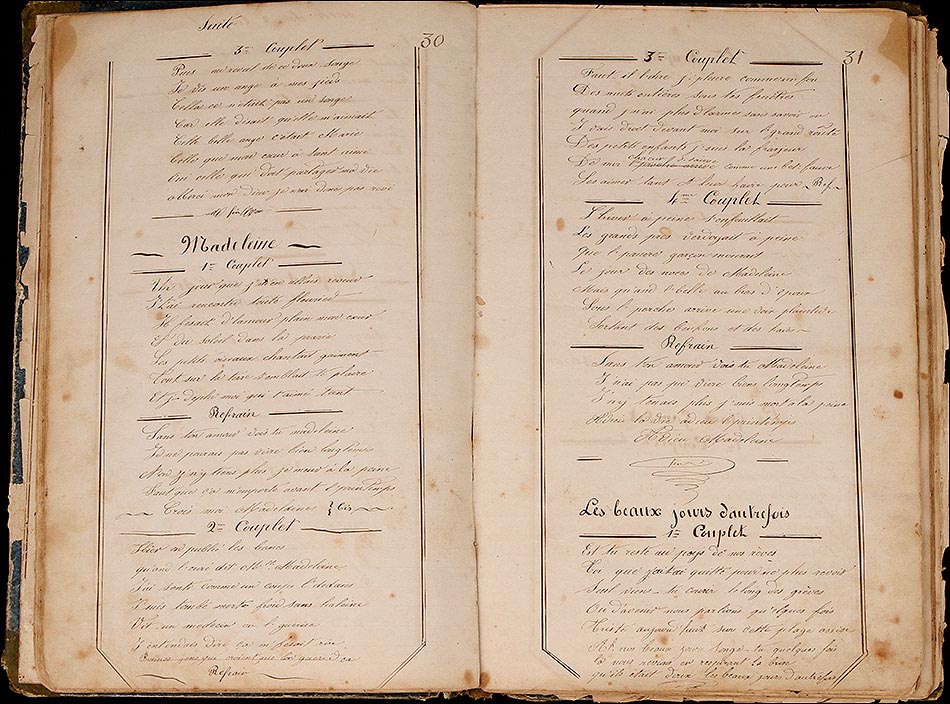 Suite
30
3me Couplet
Puis me revoit de ce doux songe
Je vis un ange a mes pied
Cella ce n'était pas un songe
Car elle disait qu'elle m'aimait
Cette belle ange c'était Marie
Celle que mon cœur a tant aimé
Oui celle qui doit partager ma vie
Merci mon dieu je nai donc pas revé
Madeleine
1er Couplet
jour que j'
J'lai rencontré toute fleurie
Il fesait d'lamour plain mon cœur
Et du soleil dans la prarie
Les petits oiseaux chantait gaiment
Tout sur la tere semblait te plaire
Et moi qui t'aime tant
Refrain
Sans ton amour vois tu madeleine
Je ne pourais pas vivre bien longtemps
Non j'n'y tiens plus je meur à la peine
Faut que ca m'emporte avant l'printemps
Crois moi Madelaine } bis
2me Couplet
Hier on publié les bancs
quand l'curé dit Melle Madeleine
J'ai sentie comme un coups l'dedans
J'suis tombé morte froid sans haleine
un médecin
J'entendais dire ca m'fesait rire
Refrain
31
3me Couplet
Faut il l'dire j'pleure comme un fou
Des nuits entières sous tes fenêtres
quand j'nai plus d'larmes sans savoir ou
J'vais droit devant moi sur l'grand route
Des petits enfants j'suis la frayeur
De moi chacun s'sauve comme un bet fauve
Les aimer tant et leur faire peur Ref
4me Couplet
L'hiver à peine s'enfeuillait
Les grands prés verdoyait à peine
Que l'pauvre garçon mourait
Le jour des noces de Madeleine
Mais quand l'belle au bras d'époux
Sous l'porches arrive une voix plaintive
Sortant des buisons et des haies
Refrain
Sans ton amour vois tu Madeleine
J'n'ai pas pu vivre bien longtemps
J'n'y tenais plus j'suis mort a la peine
Adieu adieu l'printemps
Adieu Madeleine
fin
Les beaux jours d'autrefois
1er Couplet
Es tu reste au pays de nos rêves
Toi que j'ai quitté pour ne plus revoir
Seul viens tu courir le long des grèves
Ou d'avenir nous parlions qu'elques fois
Triste aujourd'huit sur cette plage assise
A nos beaux jours songe tu quelques fois
là nous revions en respirant la brise
qu'ils était doux les beaux jours d'autrefois